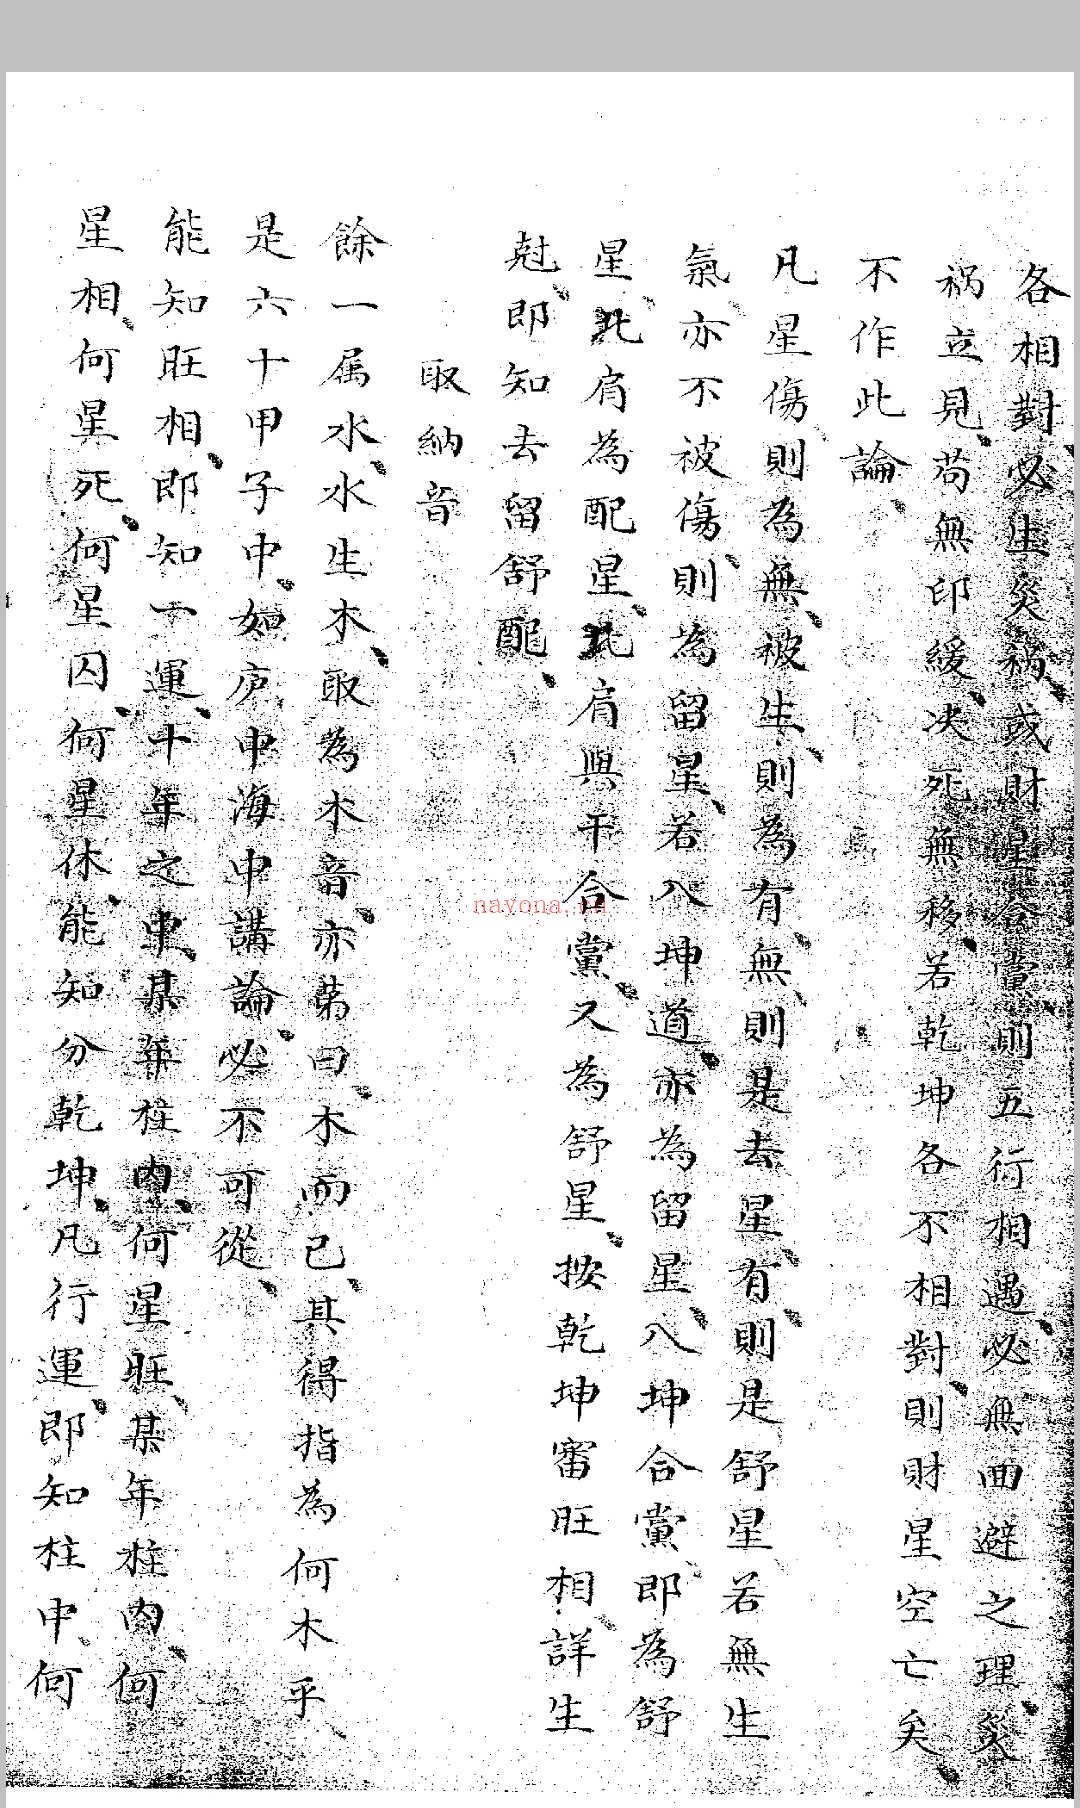 各相對、必生災禍、或財星合黨、則五行相遇、必無回避之理、災
禍立見、苟無印緩、决死無移、若乾坤各不相對、則財星空亡矣、
不作此論、
凡星傷則為無、被生、則為有、無、則是去星、有、則是舒星若無生
氣、亦不被傷、則為留星、若八坤道、亦為留星、八坤合黨、即為舒
星、比肩為配星、比肩與干合黨、又為舒星、按乾坤審旺相、詳生
尅、即知去留舒配、
取納音
餘一属水、水生木、取為木音、亦苐曰、木而己、其得指為何木乎、
是六十甲子中、如庐中海中講論、必不可從、
能知旺相、即知一運、十年之事、某年柱内、何星旺、某年柱内、何
星相、何星死、何星囚、何星休、能知分乾坤、凡行運、即知柱中、何
nayona.cn